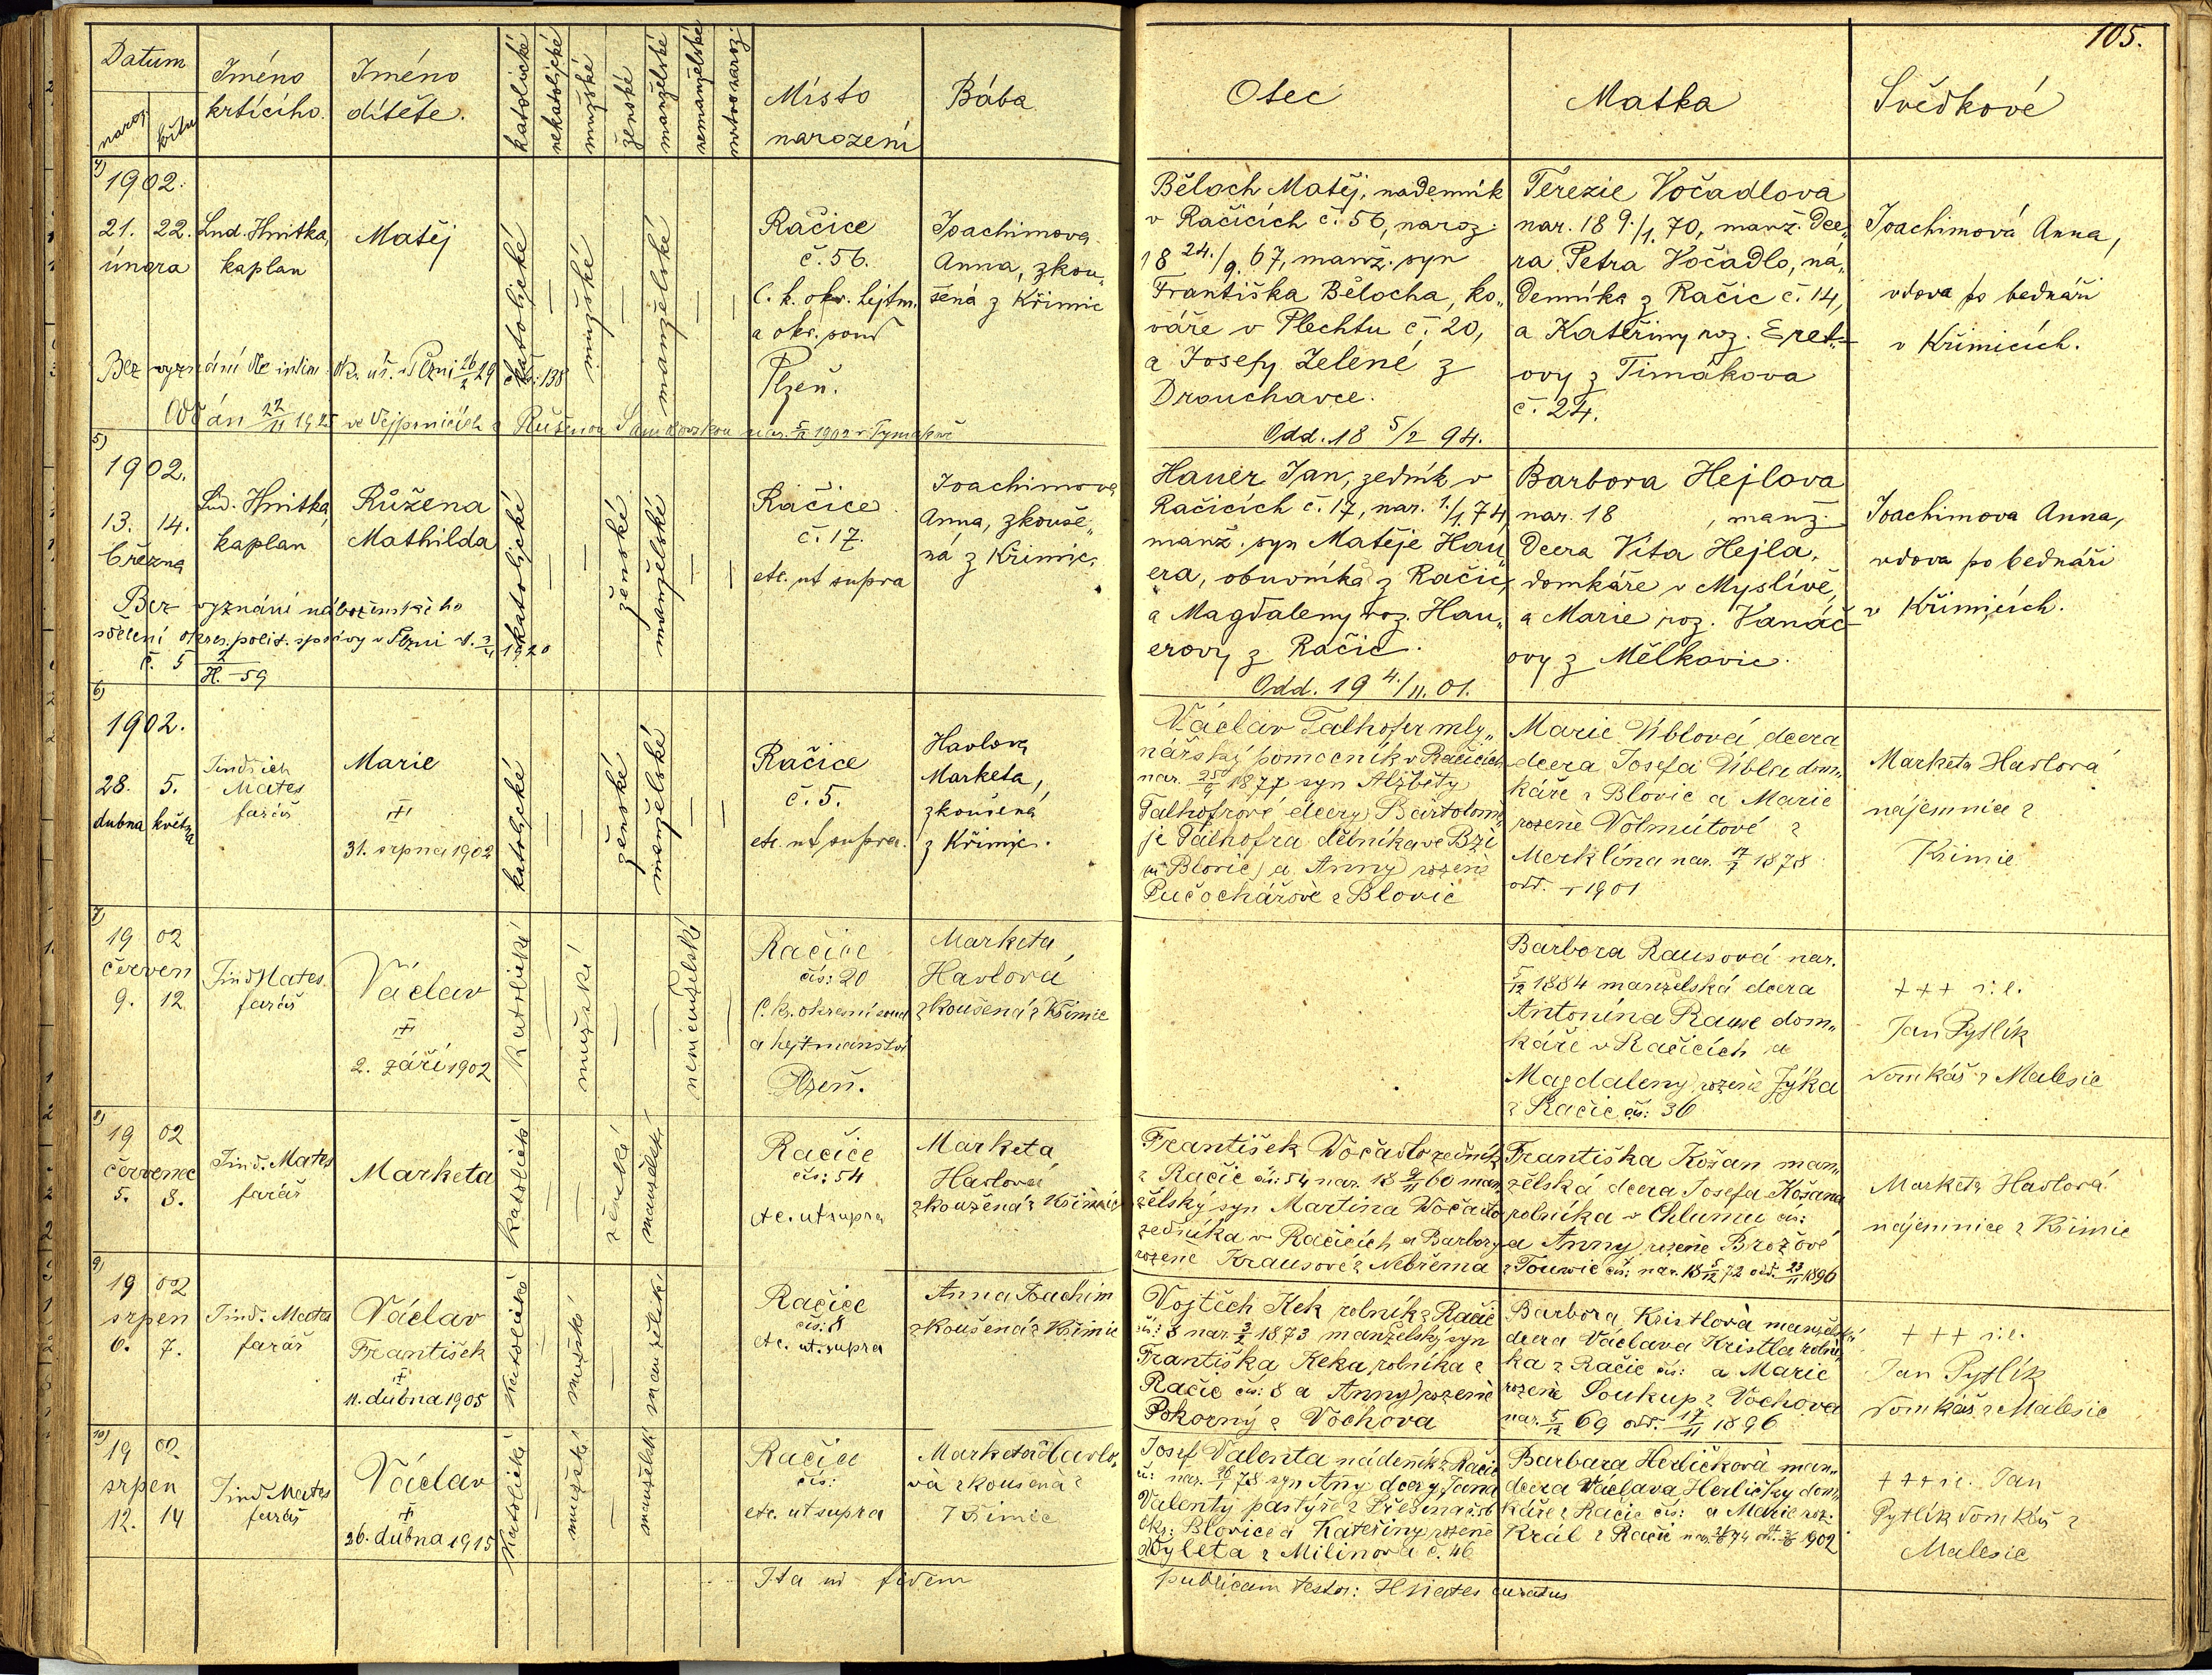 105.
Datum
naroz. křtu
Jméno
křtícího.
Jméno
dítěte.
katolické
nekatolické
mužské
ženské
manželské
nemanželské
mrtvonaroz.
Místo
narození
Bába
Otec
Matka
Svědkové
4)
1902.
21. 22.
února
Lud. Hnitka,
kaplan
Matěj
katolické
—
mužské
—
manželské
—
—
Račice
č. 56.
C. k. okr. hejtm.
a okr. soud
Plzeň.
Joachimova
Anna, zkou„
šená z Křimic
Běloch Matěj, nadenník
v Račicích č. 56, naroz.
18 24./9. 67, manž. syn
Františka Bělocha, ko„
váře v Plechtu č. 20,
a Josefy Zelené z
Drouchavce.
Odd. 18 5/2 94.
Terezie Vočadlova
nar. 18 9./1. 70, manž. dce„
ra Petra Vočadlo, ná„
denníka z Račic č. 14,
a Kateřiny roz. Eret-
ovy z Timakova
č. 24.
Joachimová Anna,
vdova po bednáři
v Křimicích.
Bez vyznání dle intim. ok. úř. v Plzni 26/2 29 č. 138
Oddán 22/11 1925 ve Vejprnicích s Růženou
5)
1902.
13. 14.
března
Lud. Hnitka,
kaplan
Růžena
Mathilda
katolické
—
—
ženské
manželské
—
—
Račice
č. 17.
etc. ut supra
Joachimova
Anna, zkouše„
ná z Křimic.
Hauer Jan, zedník v
Račicích č. 17, nar. 1./1. 74
manž. syn Matěje Hau„
era, obuvníka z Račic,
a Magdaleny roz. Hau„
erovy z Račic.
Odd. 19 4./11. 01.
Barbora Hejlova
nar. 18 , manž.
dcera Víta Hejla,
domkáře v Myslívě,
a Marie roz. Vanáč-
ovy z Mělkovic.
Joachimova Anna,
vdova po bednáři
v Křimicích.
Bez vyznání náboženského
sdělení okres. polit. správy v Plzni
H. - 59
6)
1902.
28. 5.
dubna května
Jindřich
Mates
farář
Marie
‡
31. srpna 1902
katolické
—
—
ženské
manželské
—
—
Račice
č. 5.
etc. ut supra.
Havlova
Marketa,
zkoušená
z Křimic.
Václav Talhofer mly„
nářský pomocník v Račicích
nar. 25/9 1877 syn Alžběty
Talhofrové dcery Bartolomě
je Talhofra
(u Blovic) a Anny rozené
Pučochářové z Blovic
Marie Úblová dcera
dcera Josefa Úbla dom„
káře z Blovic a Marie
rozené Volmútové z
Merklína nar. 17/7 1878
odd. 1901
Marketa Havlová
nájemnice z
Křimic
7)
1902
červen
9. 12
Jind Mates
farář
Václav
‡
2. září 1902
Katolické
—
mužské
—
—
nemanželské
—
Račice
čís: 20
C. k. okresní soud
a hejtmanství
Plzeň.
Marketa
Havlová
zkoušená z Křimic
Barbora Rausová nar.
5/12 1884 manželská dcera
Antonína Rause dom„
káře v Račicích a
Magdaleny rozené Jýka
z Račic čís: 36
+++
Jan Pytlík
domkář z Malesic
8)
1902
červenec
5. 8.
Jind. Mates
farář
Marketa
Katolické
—
—
ženské
manželské
Račice
čís: 54
etc. ut supra
Marketa
Havlová
zkoušená z Křimic
František Vočadlo zedník
z Račic čís: 54 nar. 18 9/11 60 man„
želský syn Martina Vočadlo
zedníka v Račicích a Barbory
rozené Krausové z Nebřema
Františka Kožan man„
želská dcera Josefa Kožana
rolníka v Chlumu čís:
a Anny rozené Brožové
čís: nar. 18 5/12 72 odd. 23/11 1896
Marketa Havlová
nájemnice z Křimic
9)
1902
srpen
6. 7.
Jind. Mates
farář
Václav
František
‡
11. dubna 1905
Katolické
—
mužské
—
manželské
Račice
čís: 8
etc. ut supra
Anna Joachim
zkoušená z Křimic
Vojtěch Kek rolník z Račic
čís: 8 nar. 3/2 1873 manželský syn
Františka Keka rolníka z
Račic čís: 8 a Anny rozené
Pokorný z Vochova
Barbora Kristlová manželská
dcera Václava Kristla rolní„
ka z Račic čís: a Marie
rozené Soukup z Vochova
nar. 5/12 69 odd. 17/11 1896
+++
Jan Pytlík
domkář z Malesic
10)
1902
srpen
12. 14
Jind Mates
farář
Václav
‡
26. dubna 1915
Katolické
—
mužské
—
manželské
Račice
čís:
etc. ut supra
Marketa Havlo„
vá zkoušená z
Křimic
Josef Valenta nádeník z Račic
č: nar. 26/1 78 syn Any dcery Jana
Valenty pastýře z
okr: Blovice a Kateřiny rozené
Vyleta z Milinova č. 46
Barbara Herličková man„
dcera Václava Herličky dom„
káře z Račic čís: a Marie roz.
Král z Račic 1902
+++ Jan
Pytlík domkář z
Malesic
Ita ad fidem
publicam testor: HMates curatus